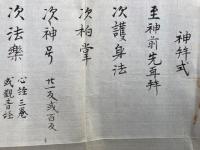 神拜式
至神前先再拜
次護身法
次柏掌
次神号 廿一反或百反
次法樂 心経三卷
或觀音経